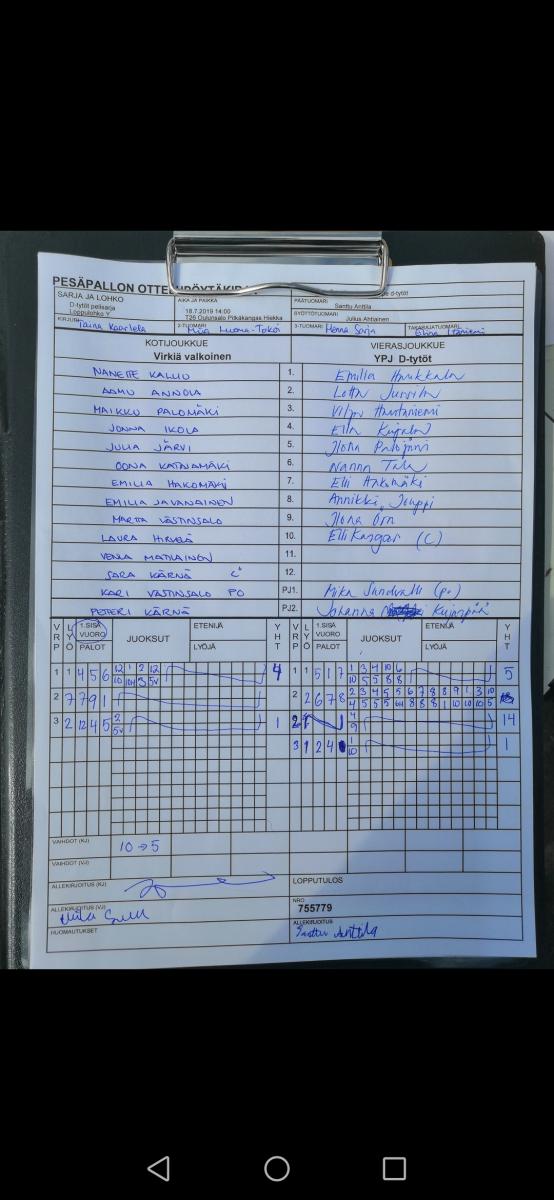 PESÄPALLON OTTELUPÖYTÄKIRJA
SARJA JA LOHKO
D-tytöt pelisarja
Loppulohko Y
AIKA JA PAIKKA
18.7.2019 14:00
T26 Oulunsalo Pitkäkangas Hiekka
d-tytöt
PÄÄTUOMARI
Santtu Anttila
SYÖTTÖTUOMARI
Julius Ahtiainen
KIRJURI
Taina Kaartela
2-TUOMARI
Miia Luoma-Tokoi
3-TUOMARI
Henna Sarja
TAKARAJATUOMARI
KOTIJOUKKUE
Virkiä valkoinen
VIERASJOUKKUE
YPJ D-tytöt
NANETTE KALLIO 1. Emilia Haukkala
AAMU ANNOLA 2. Lotta Jussila
MAIKKU PALOMÄKI 3. Vilja Hautaniemi
JONNA IKOLA 4. Ella Kujala
JULIA JÄRVI 5. Ilona Palojärvi
OONA KATAJAMÄKI 6. Nanna Tala
EMILIA HAKOMÄKI 7. Elli
EMILIA JAVANAINEN 8. Annikki Jouppi
MARTTA VÄSTINSALO 9. Ilona Örn
LAURA HIRVELÄ 10. Elli Kangas (C)
VENLA MATILAINEN 11.
SARA KÄRNÄ C 12.
KARI VÄSTINSALO PO PJ1. Mika Sundvall (po)
PETTERI KÄRNÄ PJ2. Johanna
VRP LYÖ 1.SISÄ VUORO PALOT JUOKSUT ETENIJÄ LYÖJÄ YHT
VRP LYÖ 1.SISÄ VUORO PALOT JUOKSUT ETENIJÄ LYÖJÄ YHT
1 1 4 5 6 12 1 2 12 4
1 1 5 1 7 1 3 4 10 6 5
10 5 5 8 8
2 7 7 9 1
2 2 6 7 8 2 3 4 5 5 6 7 8 8 9 1 3 10
3 2 12 4 5 2 1
4 14
9
3 1 2 4 1 1
10
VAIHDOT (KJ) 10→5
VAIHDOT (VJ)
ALLEKIRJOITUS (KJ)
LOPPUTULOS
ALLEKIRJOITUS (VJ)
NRO
755779
HUOMAUTUKSET
ALLEKIRJOITUS
Santtu Anttila